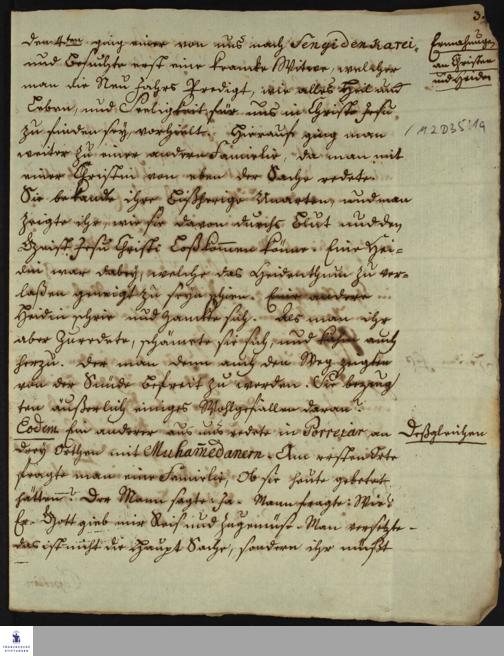 3.
Den 4ten ging einer von uns nach Sengidenkarei,
und besuchte erst eine krancke Witwe, welcher
man die Neu Jahrs Predigt, wie alles Heil und
Leben, und Seeligkeit für uns in Christo Jesu
zu finden sey, vorhielt. Hierauf ging man
weiter zu einer andern Familie, da man mit
einer Christin von eben der Sache redete.
Sie bekandte ihre bißherige Unarten, und man
zeigte ihr, wie sie davon durchs Blut und den
Geist Jesu Christi loßkommen könne. Eine Hei-
din war dabey, welche das Heidenthum zu ver-
laßen geneigt zu seyn schien. Eine andere
Heidin schrie und zanckte sich. Als man ihr
aber zuredete, schämete sie sich, und kam auch
herzu. Der man denn auch den Weg zeigte
von der Sünde befreit zu werden. Sie bezeug
ten äußerlich einiges Wohlgefallen daran.
Eodem Ein anderer aus uns redete in Porreiar an
drey Orthen mit Muhammedanern. Am ersten Orte
fragte man eine Familie, Ob sie heute gebetet
hätten? Der Mann sagte: Ja. Man fragte: Wie?
Er: Gott gieb mir Reis und Zugemüse. Man versetzte
das ist nicht die Haupt Sache, sondern ihr müßt
Ermahnungen
an Christen
und Heiden
Deßgleichen
FRANCKESCHE
STIFTUNGEN